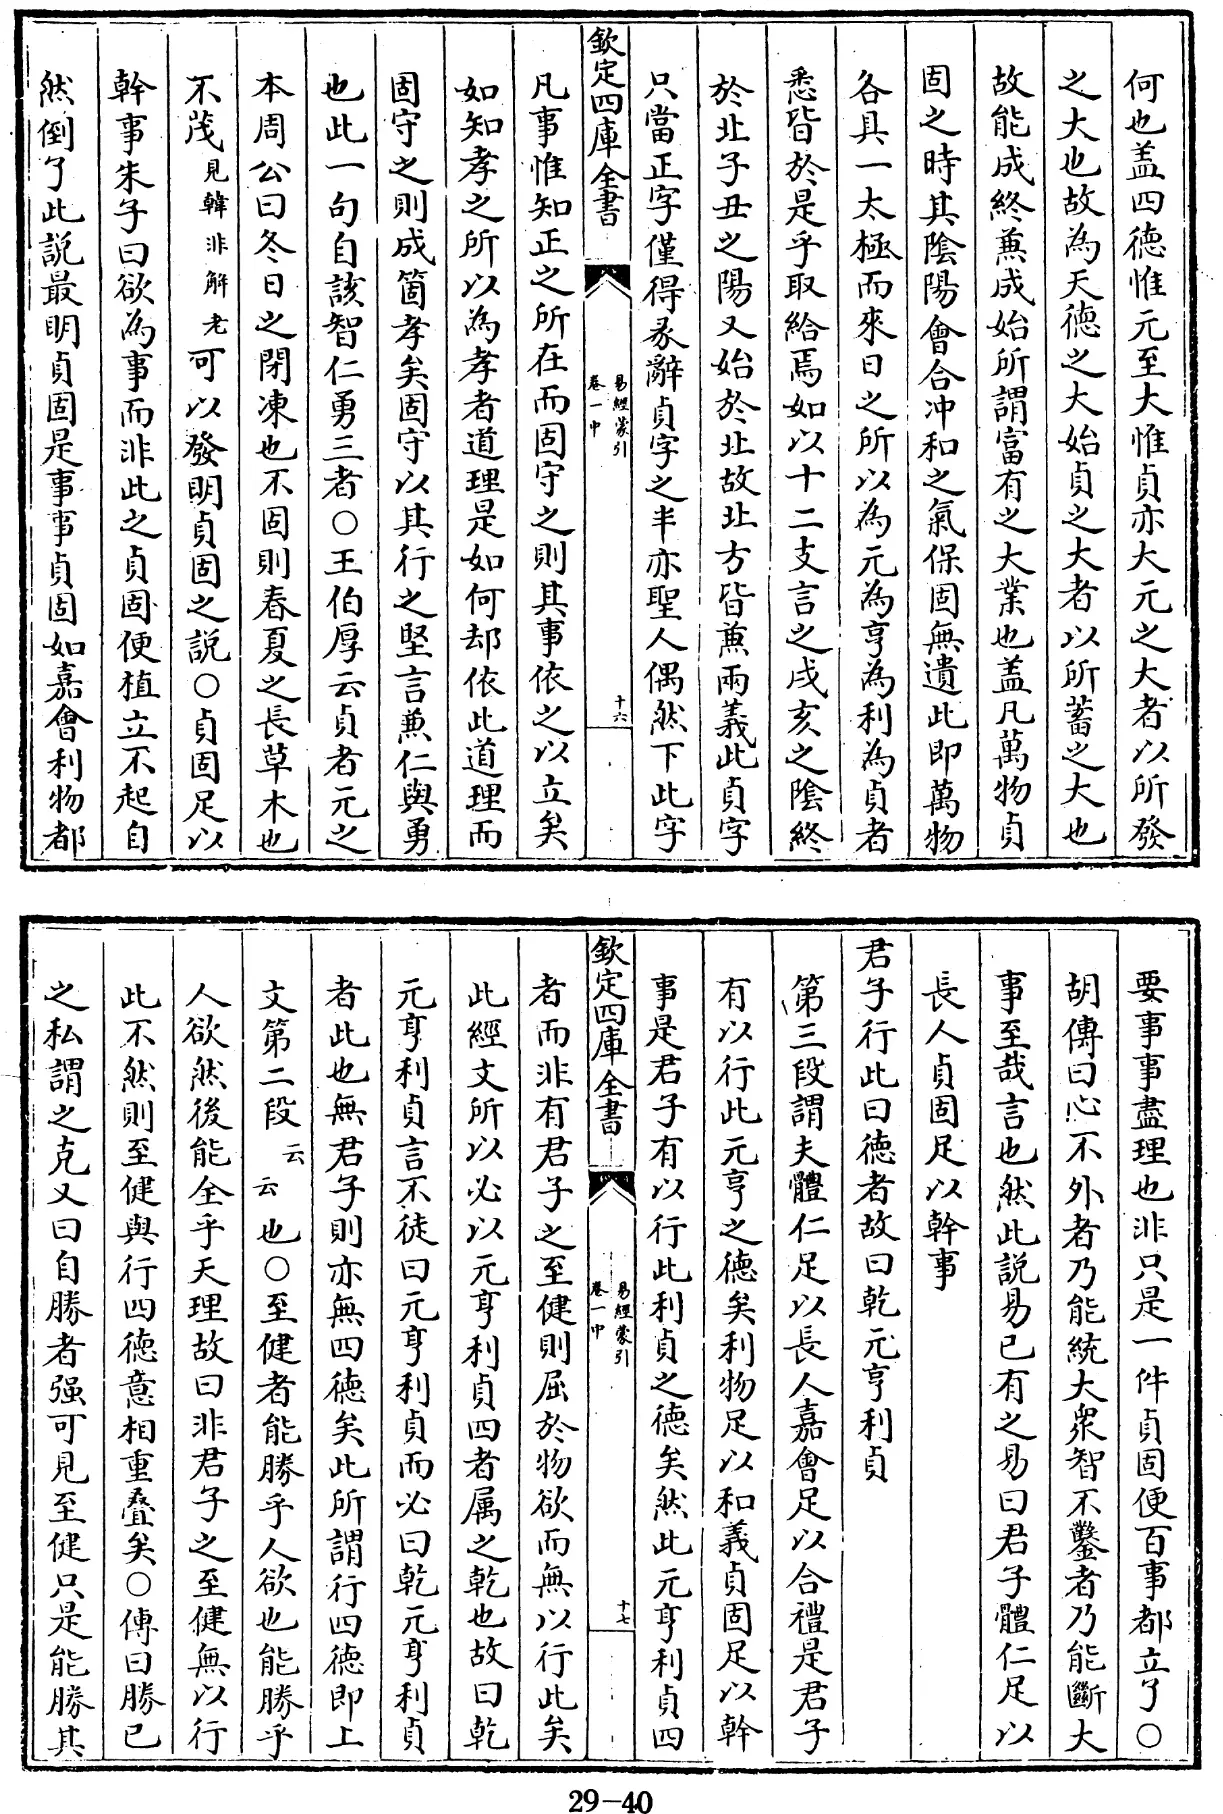 何也盖四德惟元至大惟貞亦大元之大者以所發
之大也故為天德之大始貞之大者以所蓄之大也
故能成終兼成始所謂富有之大業也盖凡萬物貞
固之時其陰陽會合冲和之氣保固無遺此即萬物
各具一太極而來日之所以為元為亨為利為貞者
悉皆於是乎取給焉如以十二支言之戌亥之陰終
於北子丑之陽又始於北故北方皆兼兩義此貞字
只當正字僅得彖辭貞字之半亦聖人偶然下此字
欽定四庫全書
易經蒙引
卷一中
十六
凡事惟知正之所在而固守之則其事依之以立矣
如知孝之所以為孝者道理是如何却依此道理而
固守之則成箇孝矣固守以其行之堅言兼仁與勇
也此一句自該智仁勇三者○王伯厚云貞者元之
本周公曰冬日之閉凍也不固則春夏之長草木也
不茂見韓非解老可以發明貞固之説○貞固足以
幹事朱子曰欲為事而非此之貞固便植立不起自
然倒了此説最明貞固是事事貞固如嘉會利物都
要事事盡理也非只是一件貞固便百事都立了○
胡傳曰心不外者乃能統大衆智不鑿者乃能斷大
事至哉言也然此説易已有之易曰君子體仁足以
長人貞固足以幹事
君子行此曰德者故曰乾元亨利貞
第三段謂夫體仁足以長人嘉會足以合禮是君子
有以行此元亨之德矣利物足以和義貞固足以幹
事是君子有以行此利貞之德矣然此元亨利貞四
欽定四庫全書
易經蒙引
卷一中
十七
者而非有君子之至健則屈於物欲而無以行此矣
此經文所以必以元亨利貞四者属之乾也故曰乾
元亨利貞言不徒曰元亨利貞而必曰乾元亨利貞
者此也無君子則亦無四德矣此所謂行四德即上
文第二段云云也○至健者能勝乎人欲也能勝乎
人欲然後能全乎天理故曰非君子之至健無以行
此不然則至健與行四德意相重疊矣○傳曰勝已
之私謂之克又曰自勝者强可見至健只是能勝其
29-40